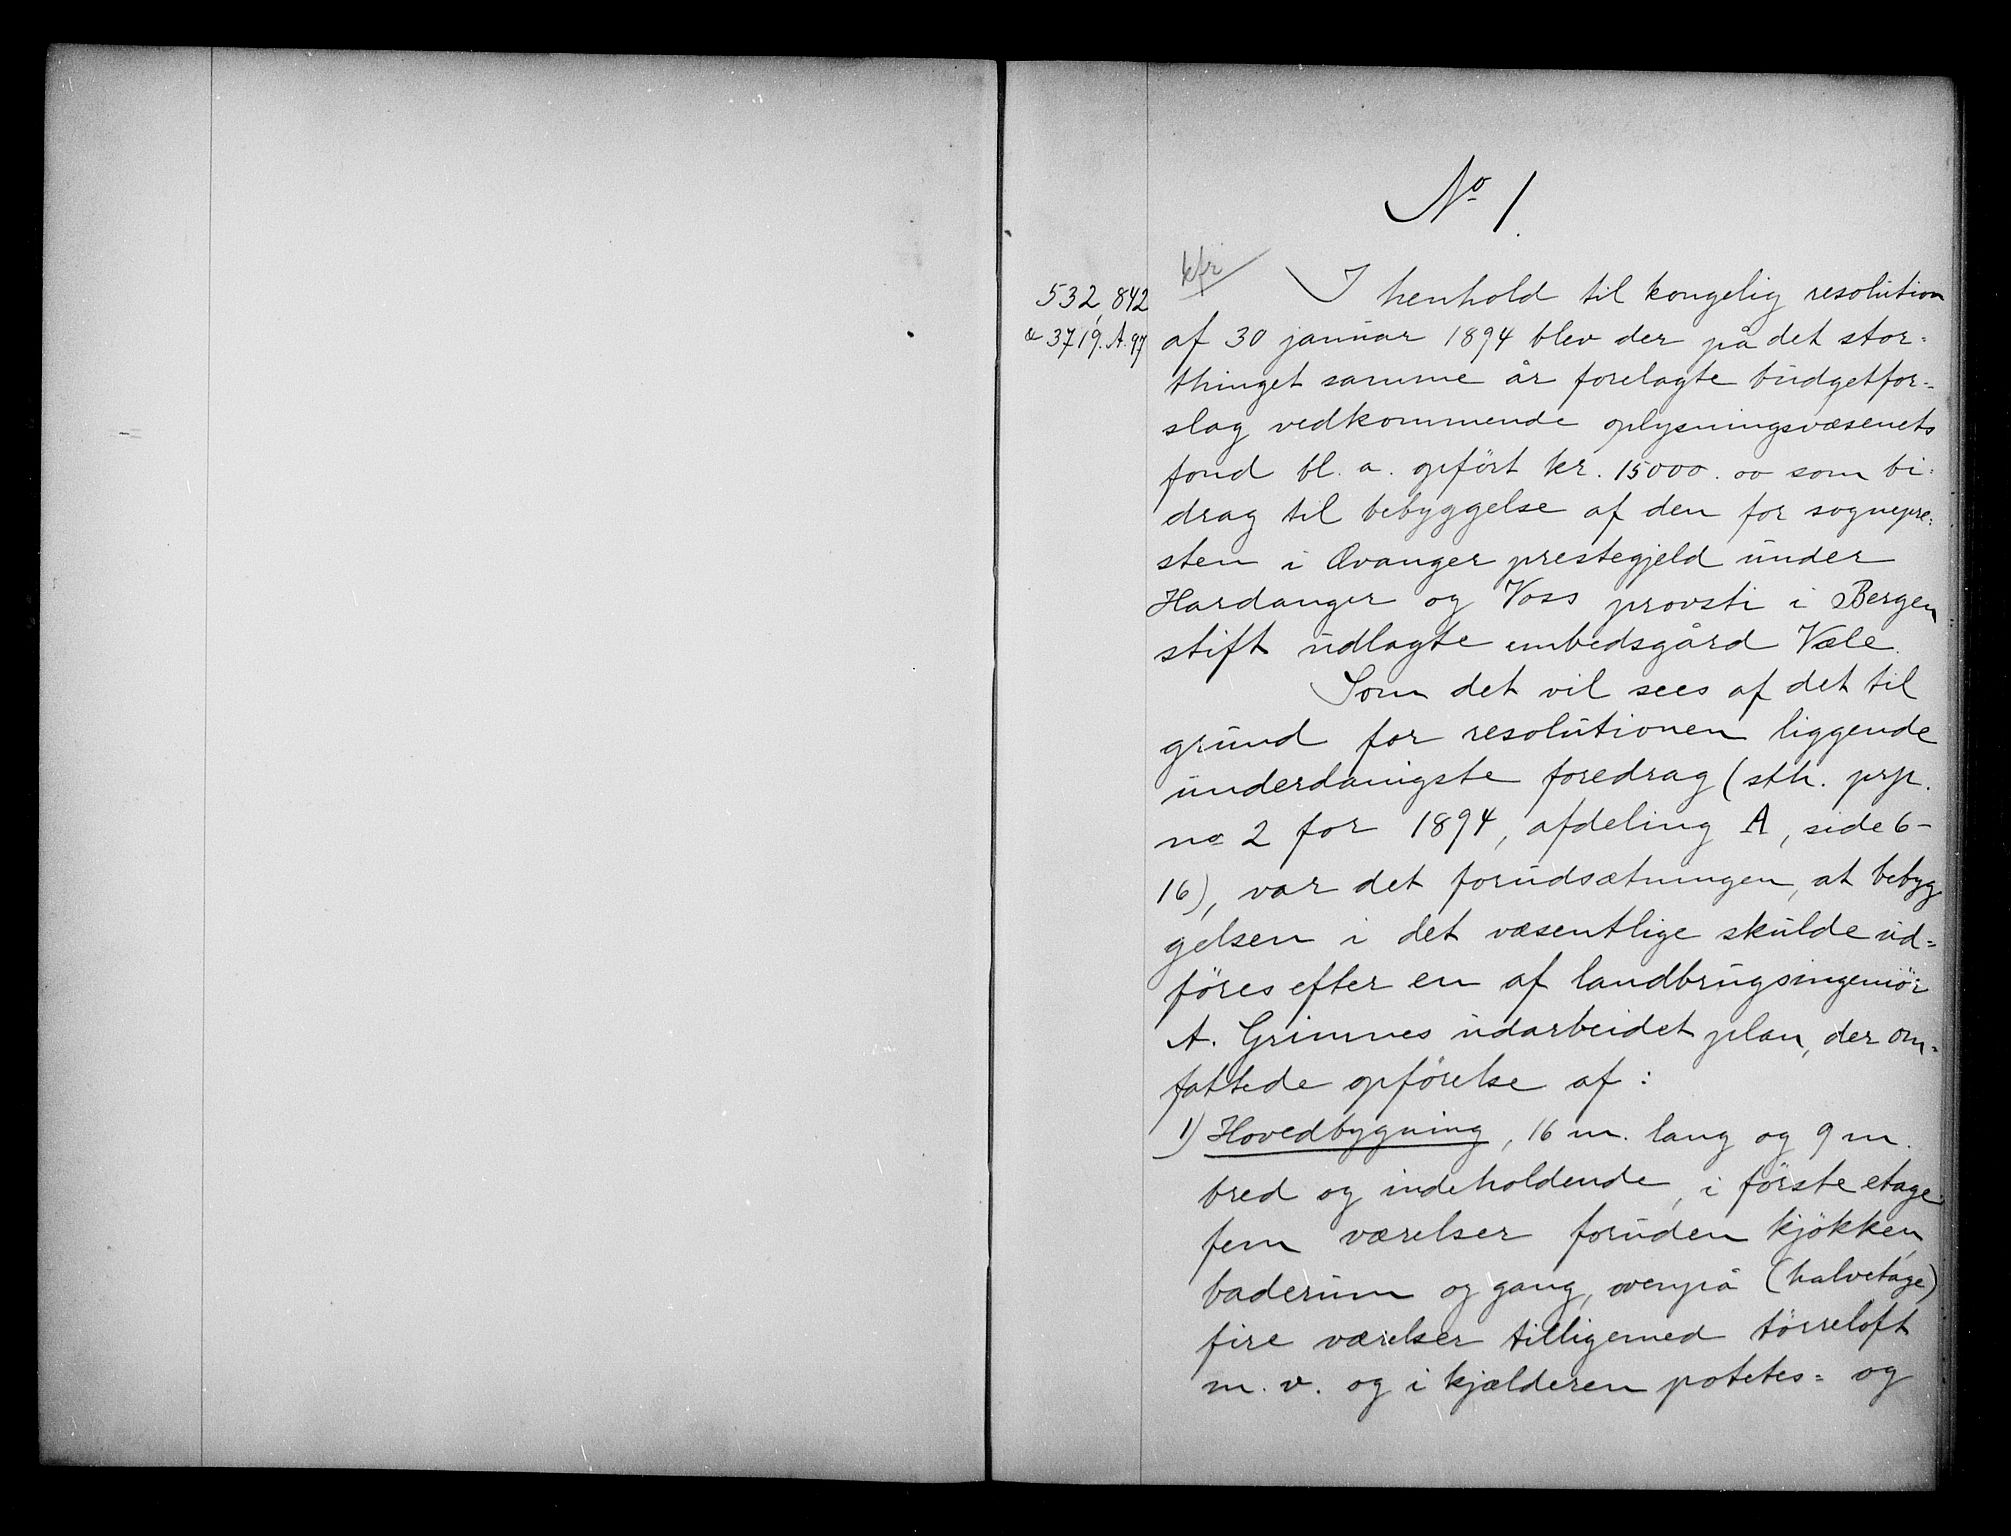 No 1.
kfr
532, 842
& 3719. A. 97
I henhold til kongelig resolution
af 30 januar 1894 blev der på det stor-
thinget samme år forelagte budgetfor-
slag vedkommende oplysningsvæsenets
fond bl. a. opført kr. 15000.00 som bi-
drag til bebyggelse af den for sognepre-
sten i Evanger prestegjeld under
Hardanger og Voss provsti i Bergen
stift udlagte embedsgård Væle.
Som det vil sees af det til
grund for resolutionen liggende
underdanigste foredrag (sth. prp.
no 2 for 1894, afdeling A, side 6-
16), var det forudsætningen, at bebyg
gelsen i det væsentlige skulde ud-
føres efter en af landbrugsingeniør
A. Grimnes udarbeidet plan, der om-
fattede opførelse af:
1) Hovedbygning, 16 m. lang og 9 m.
bred og indeholdende, i første etage
fem værelser foruden kjøkken,
baderum og gang, ovenpå (halvetage)
fire værelser tilligemed tørreloft
m. v. og i kjælderen potetes- og